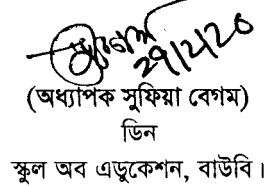 ২৭/২/২০
(অধ্যাপক সুফিয়া বেগম)
ডিন
স্কুল অব এডুকেশন, বাউবি।